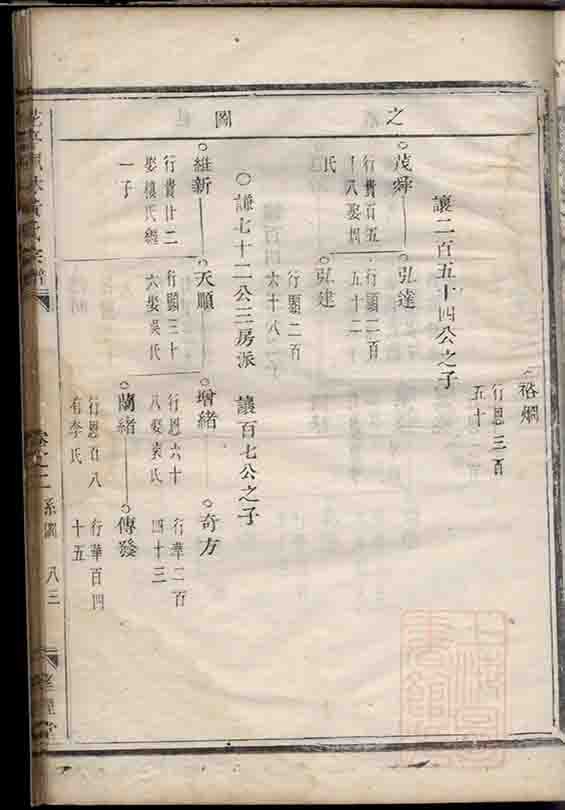 之
圖
裕烱
行恩三百
五十
讓二百五十四公之子
茂舜
行貴百五
十八娶周
氏
弘達
行顯二百
五十二
弘建
行顯二百
六十八
謙七十二公三房派
讓百七公之子
維新
行貴廿二
娶樓氏繼
一子
天順
行顯三十
六娶吳氏
增緒
行恩六十
八娶袁氏
奇方
行華二百
四十三
蘭緒
行恩百八
有李氏
傳發
行華百四
十五
卷之二
系圖
八三
上海圖
書館藏